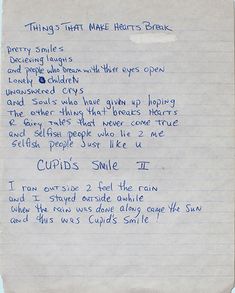 THINGS THAT MAKE HEARTS BREAK
pretty smiles
Decieving laughs
and people who dream with ther eyes open
Lonely children
unanswered crys
and Souls who have given up hoping
The other thing that breaks Hearts
R fairy tales that never come true
and selfish people who lie 2 me
selfish people just like u
CUPID'S SMILE II
I ran outside 2 feel the rain
and I stayed outside awhile
when the rain was done along came the SUN
and this was Cupid's Smile!